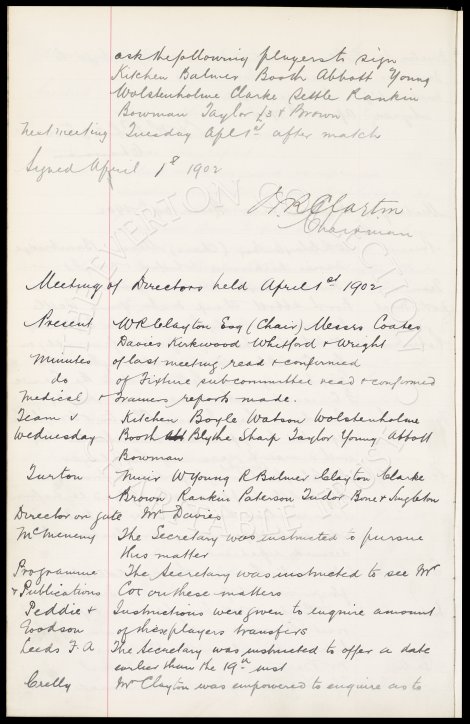 ask the following players to sign
Kitchen Balmer Booth Abbott Young
Wolstenholme Clarke Settle Rankin
Bowman Taylor £3 & Brown
Next meeting Tuesday Apl 1st after match
Signed April 1st 1902
W. R. Clayton
Chairman
Meeting of Directors held April 1st 1902
Present W R Clayton Esq (Chair) Messrs Coates
Davies Kirkwood Whitford & Wright
Minutes of last meeting read & confirmed
do of Fixture subcommittee read & confirmed
Medical & Trainers reports made.
Team v Kitchen Boyle Watson Wolstenholme
Wednesday Booth Blythe Sharp Taylor Young Abbott
Bowman
Turton Muir W Young R Balmer Clayton Clarke
Brown Rankin Paterson Tudor Bone & Singleton
Director on gate Mr Davies
McMenemy The Secretary was instructed to pursue
this matter
Programme The Secretary was instructed to see Mr
& Publications Cox on these matters
Peddie & Instructions were given to enquire amount
Goodson of these players transfers
Leeds F. A The Secretary was instructed to offer a date
earlier than the 19th inst
Crelly Mr Clayton was empowered to enquire as to
THE EVERTON COLLECTION CHARITABLE TRUST